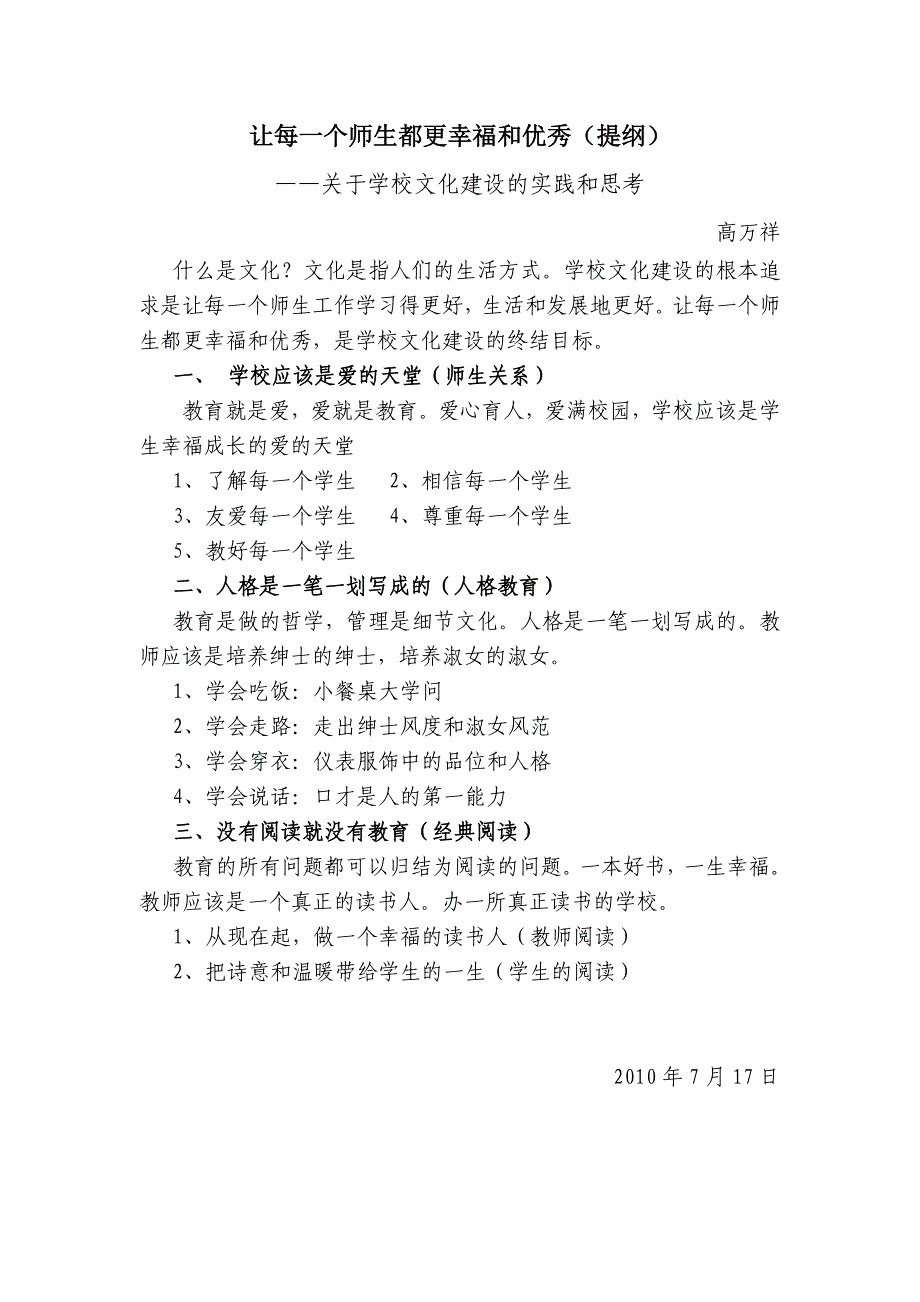 让每一个师生都更幸福和优秀（提纲）
——关于学校文化建设的实践和思考
高万祥
什么是文化？文化是指人们的生活方式。学校文化建设的根本追
求是让每一个师生工作学习得更好，生活和发展地更好。让每一个师
生都更幸福和优秀，是学校文化建设的终结目标。
一、 学校应该是爱的天堂（师生关系）
教育就是爱，爱就是教育。爱心育人，爱满校园，学校应该是学
生幸福成长的爱的天堂
1、了解每一个学生 2、相信每一个学生
3、友爱每一个学生 4、尊重每一个学生
5、教好每一个学生
二、人格是一笔一划写成的（人格教育）
教育是做的哲学，管理是细节文化。人格是一笔一划写成的。教
师应该是培养绅士的绅士，培养淑女的淑女。
1、学会吃饭：小餐桌大学问
2、学会走路：走出绅士风度和淑女风范
3、学会穿衣：仪表服饰中的品位和人格
4、学会说话：口才是人的第一能力
三、没有阅读就没有教育（经典阅读）
教育的所有问题都可以归结为阅读的问题。一本好书，一生幸福。
教师应该是一个真正的读书人。办一所真正读书的学校。
1、从现在起，做一个幸福的读书人（教师阅读）
2、把诗意和温暖带给学生的一生（学生的阅读）
2010 年 7 月 17 日